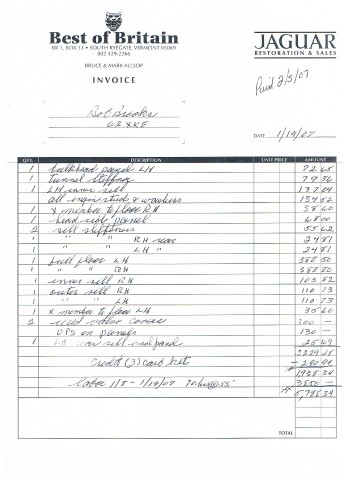 Best of Britain
RR 1, BOX 33 • SOUTH RYEGATE, VERMONT 05069
802 429-2266
BRUCE & MARK ALLSOP
INVOICE
JAGUAR
RESTORATION & SALES
Paid 2/5/07
Bob Brooks
62 XKE
DATE 1/19/07
QTY. DESCRIPTION UNIT PRICE AMOUNT
1 bulkhead panel LH 72 65
1 tunnel stiffner 79 36
1 LH inner sill 137 04
all engine studs & washers 134 82
1 X member to floor RH 35 60
1 head side panel 68 00
2 sill stiffeners 55 62
1 " " RH rear 24 81
1 " " LH " 24 81
1 full floor LH 388 80
1 " " RH 388 80
1 inner sill RH 103 82
1 outer sill RH 110 73
1 " " LH 110 73
1 X member to floor LH 35 60
2 valve covers 300 —
UPS on panels 130 —
1 LH rear sill end panel 25 49
2229.28
Credit (3) carb kits - 290.94
1,938.34
Labor 1/8 - 1/19/07 3850 —
5,788.34
TOTAL